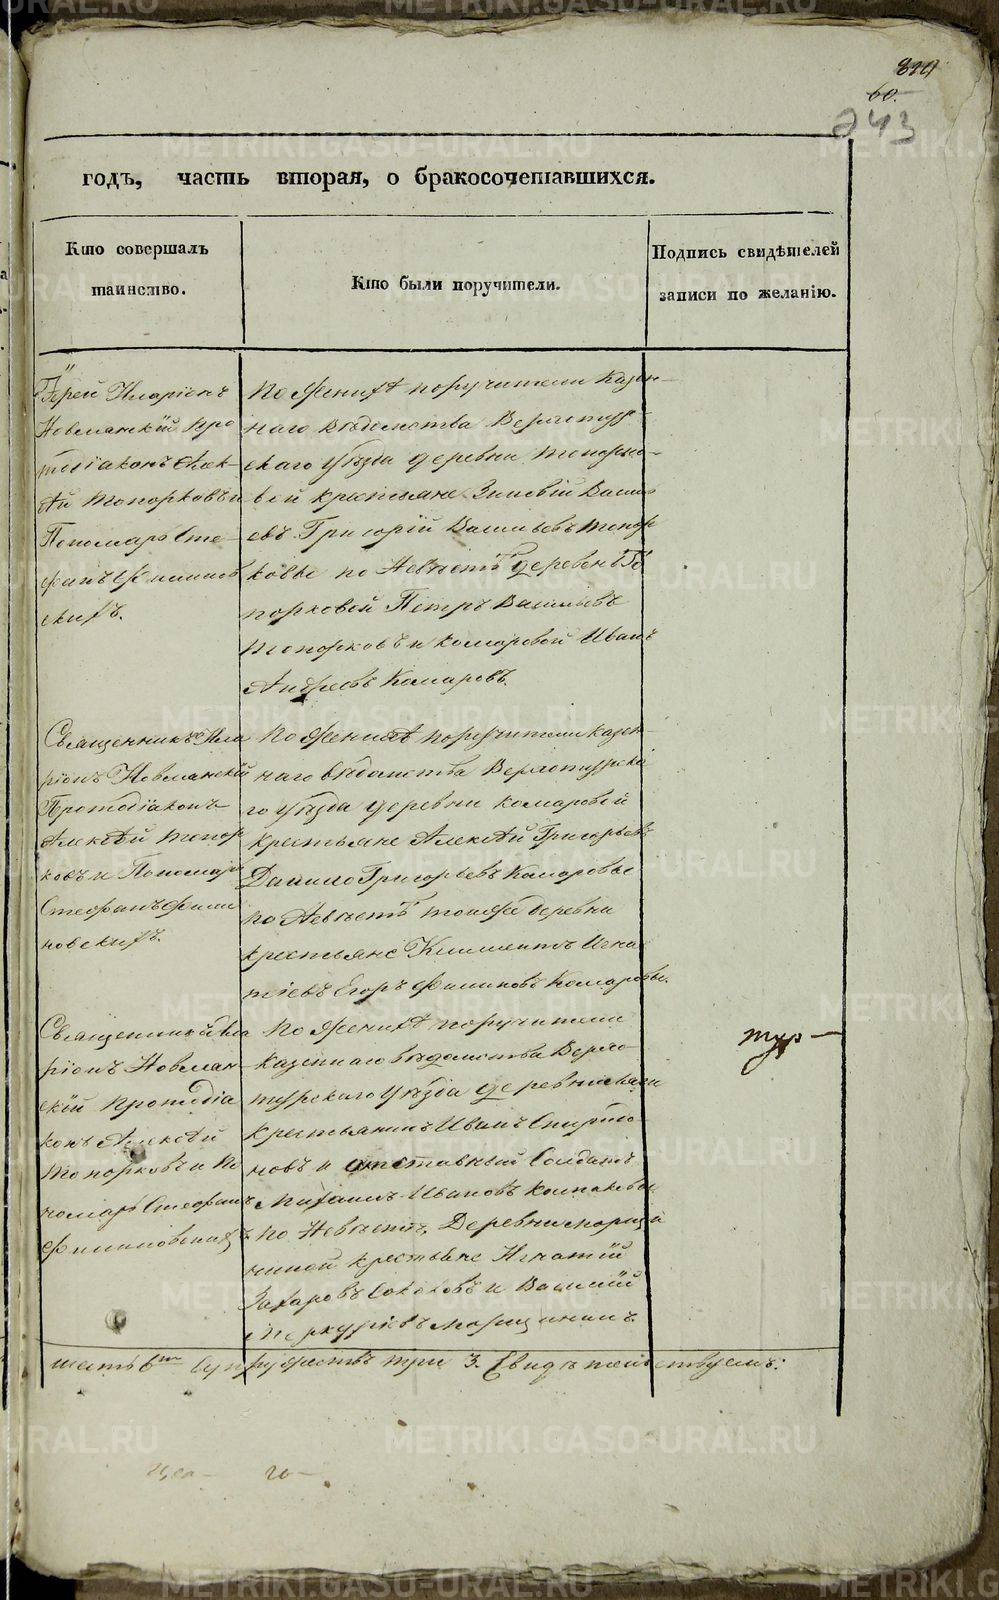 60.
243
годъ, часть вторая, о бракосочетавшихся.
Кто совершалъ
таинство.
Кто были поручители.
Подпись свидѣтелей
записи по желанію.
Іерей Иларіонъ
Новлянскій про
тодіаконъ Алек-
ѣй Топорковъ и
Пономарь Сте-
фанъ Филинов
скихъ.
По женихѣ поручители казен-
наго вѣдомства Верхотур
скаго уѣзда деревни Топорко-
вой крестьяне Зиновій Васил
евъ Григорій Васильевъ Топор
ковы по невѣстѣ деревень То
порковой Петръ Васильевъ
Топорковъ и Комаровой Иванъ
Андреевъ Комаровъ.
Священникъ Ила
ріонъ Новлянскій
Протодіаконъ
Алексѣй Топор
ковъ и Пономарь
Стефанъ Фили
новскихъ.
По женихѣ поручители казен-
наго вѣдомства Верхотурска
го уѣзда деревни Комаровой
крестьяне Алексѣй Григорьевъ
Данило Григорьевъ Комаровы
по невѣстѣ тоя же деревни
крестьяне Климентъ Игна
тіевъ Егоръ Филиповъ Комаровы.
Священникъ Ила
ріонъ Новлян-
скій протодіа
конъ Алексѣй
Топорковъ и По
номарь Стефанъ
Филиновскихъ
По женихѣ поручители
казеннаго вѣдомства Верхо-
турскаго уѣзда деревни
крестьянинъ Иванъ Спиридо
новъ и отставный солдатъ
Михаилъ Ивановъ
по невѣстѣ, Деревни Морщи
ниной крестьяне Игнатій
Захаровъ Соколовъ и Василій
Меркурьевъ Морщининъ.
тур-
шесть 6 супружествъ три 3. Свидѣтельствуемъ: